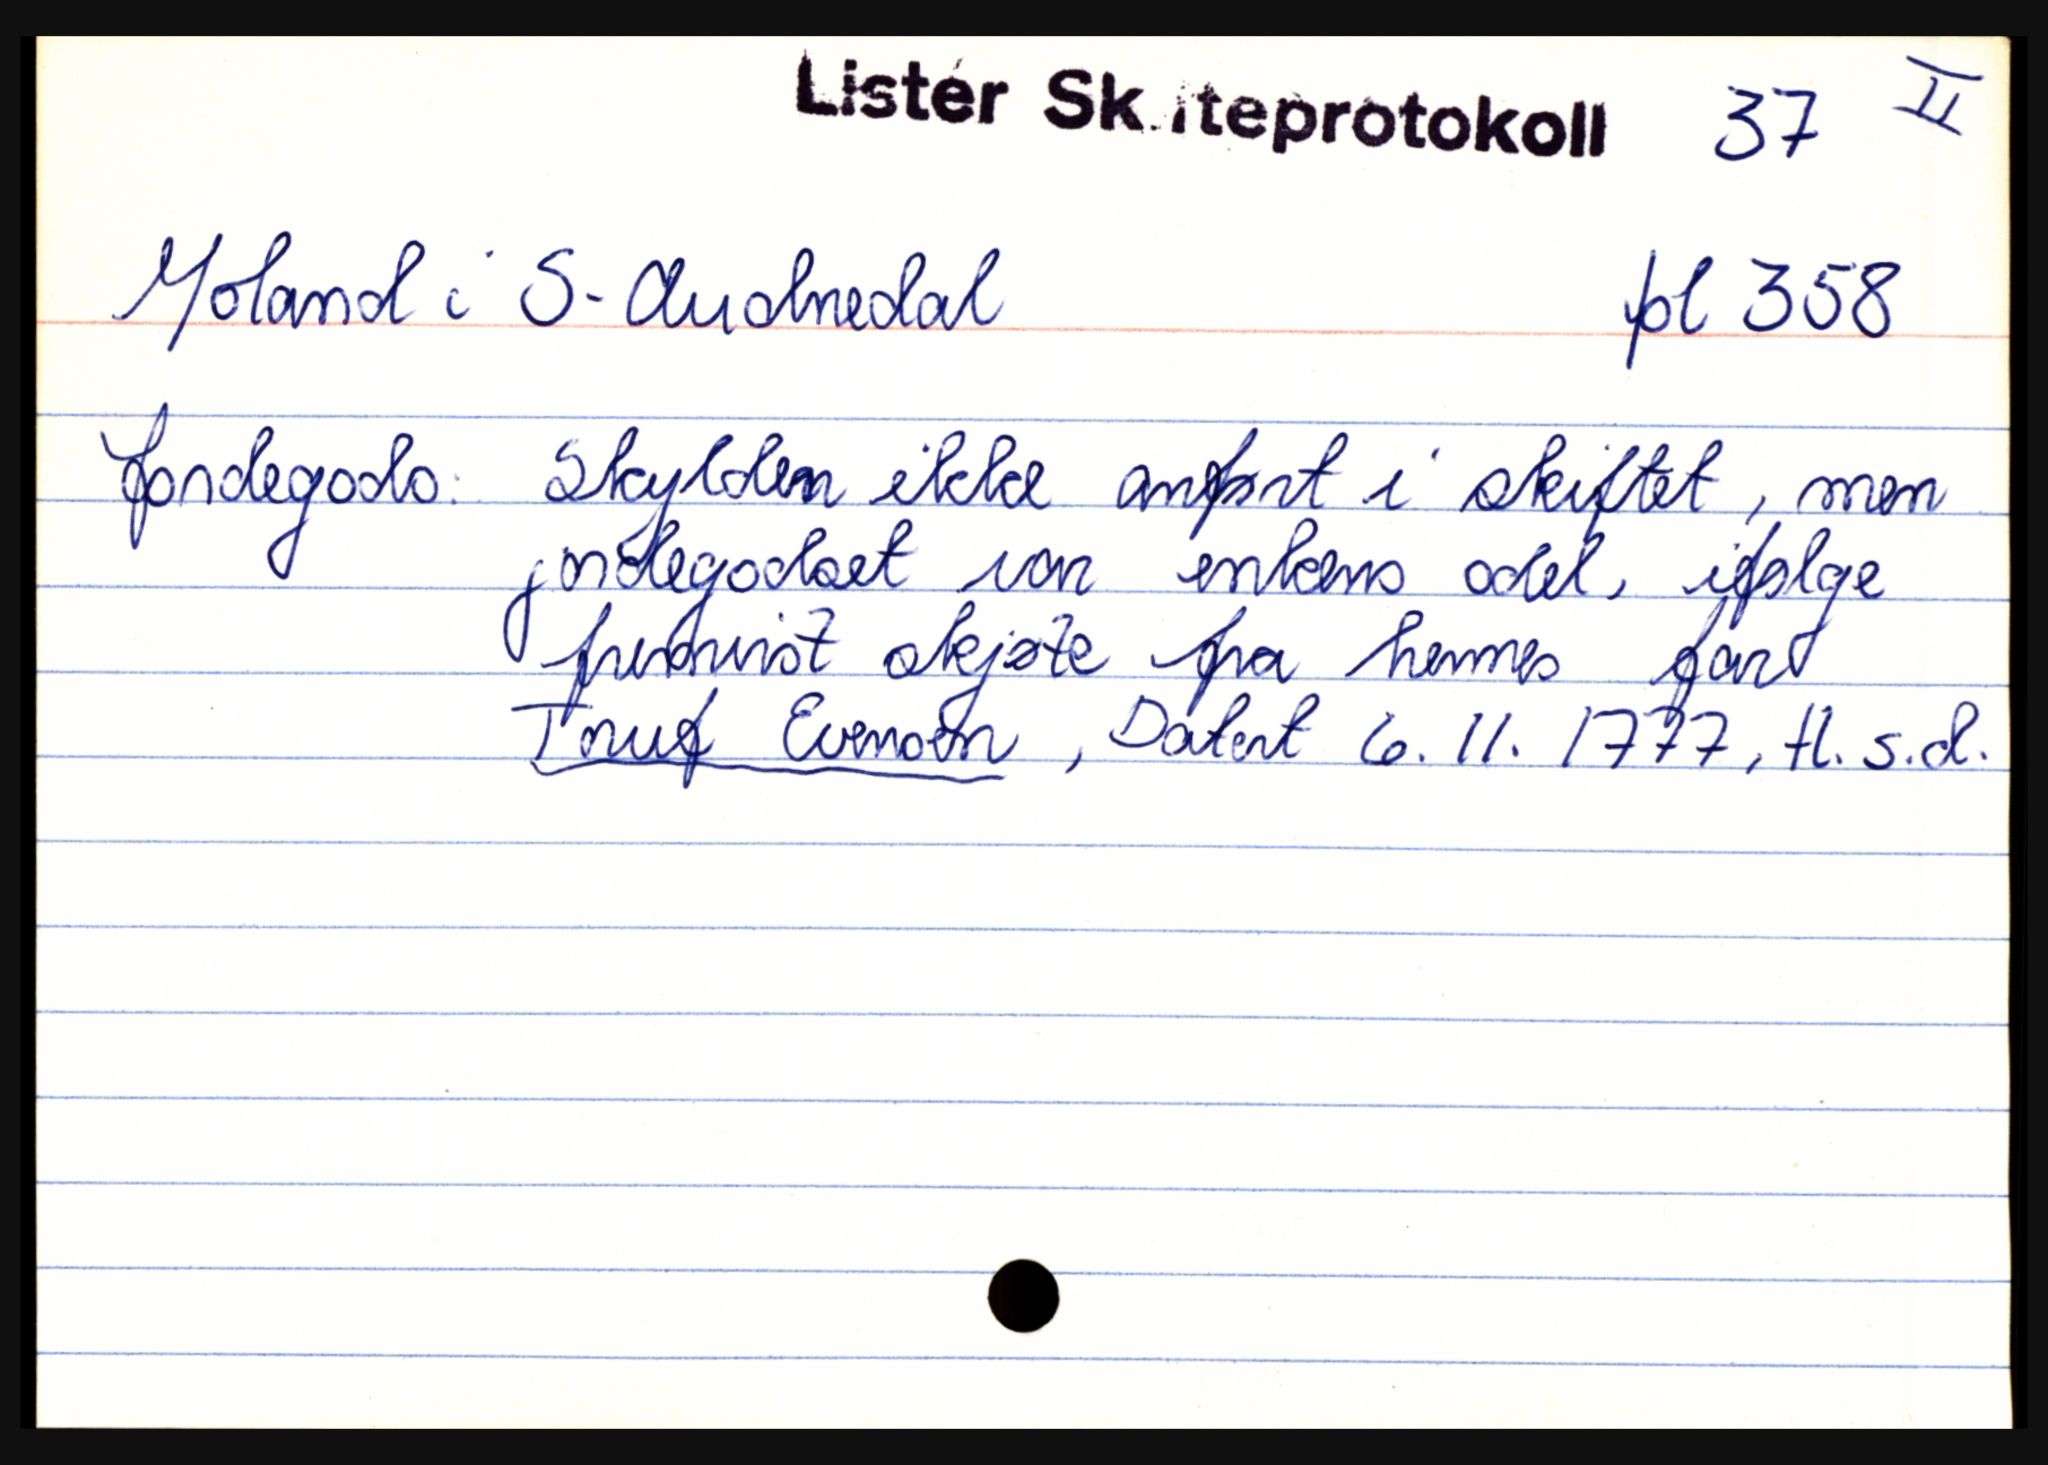 Lister Skifteprotokoll 37 II
Moland i S-Audnedal pl 358
Jordegods: Skylden ikke anført i skiftet, men
jordegodset var enkens odel, ifølge
fremvist skjøte fra hennes far
Truf Evensen, Datert 6.11.1777, tl. s.d.